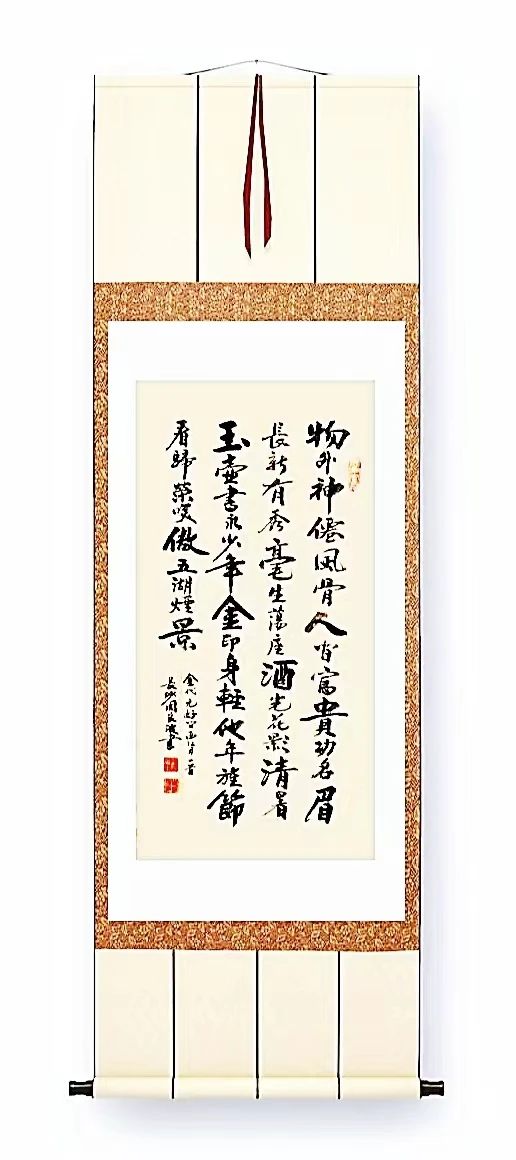 物外神僊風骨人皆富貴功名眉
長新有秀毫生蕩座酒光花影清暑
玉壺書永少年金印身輕他年旌節
看歸榮咲傲五湖煙景
金代元好問西江月一首
長沙周書